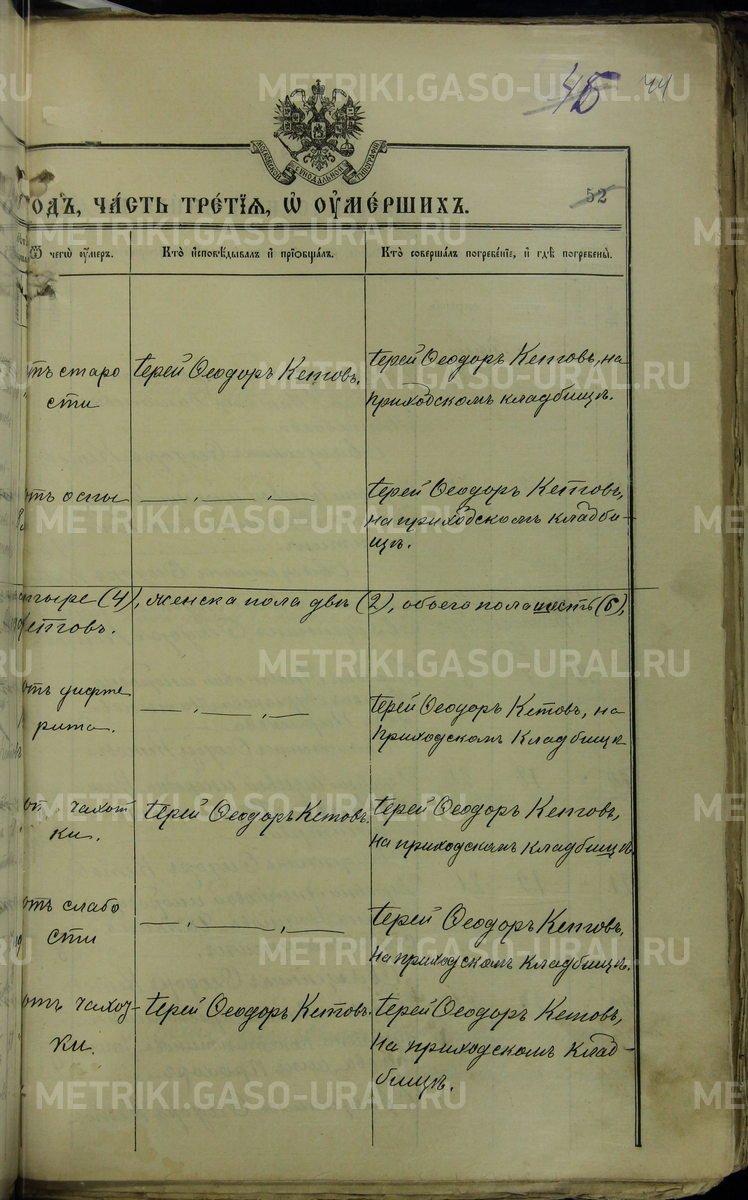 METRIKI.GASO-URAL.RU
45 44
МОСКОВСКОЙ СѴНОДАЛЬНОЙ ТИПОГРАФІИ
52
одъ, ча́сть тре́тїѧ, ѡ҆ ᲂу҆ме́ршихъ.
Ѿ чегѡ̀ ᲂу҆́меръ.
Кто̀ и҆сповѣ́дывалъ и҆ прїѡбща́лъ.
Кто̀ соверша́лъ погребе́нїе, и҆ гдѣ̀ погребены̀.
тъ старо
сти
Іерей Ѳеодоръ Кетовъ.
Іерей Ѳеодоръ Кетовъ, на
приходскомъ кладбищѣ.
отъ оспы
— , — , —
Іерей Ѳеодоръ Кетовъ,
на приходскомъ кладби-
щѣ.
METRIKI.GASO-URAL.RU
тыре (4), женска пола двѣ (2), обоего пола шесть (6),
Кетовъ.
METRIKI.GASO-URAL.RU
отъ дифте
рита.
— , — , —
Іерей Ѳеодоръ Кетовъ, на
приходскомъ кладбищѣ
от чахот
ки.
Іерей Ѳеодоръ Кетовъ.
Іерей Ѳеодоръ Кетовъ,
на приходскомъ кладбищѣ.
METRIKI.GASO-URAL.RU
отъ слабо
сти
— , — , —
Іерей Ѳеодоръ Кетовъ,
на приходскомъ кладбищѣ.
METRIKI.GASO-URAL.RU
отъ чахот-
ки.
Іерей Ѳеодоръ Кетовъ.
Іерей Ѳеодоръ Кетовъ,
на приходскомъ клад-
бищѣ.
METRIKI.GASO-URAL.RU